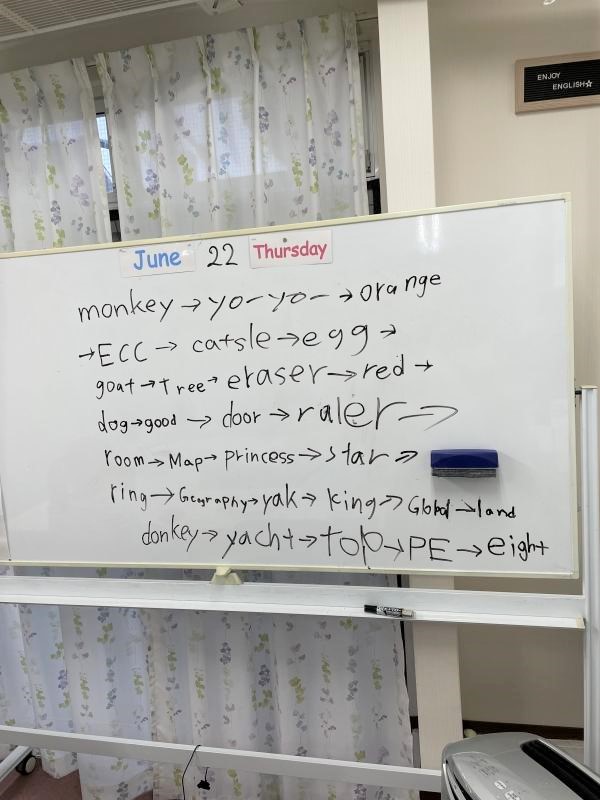 ENJOY
ENGLISH☆
June 22 Thursday
monkey → yo-yo- → orange
→ ECC → catsle → egg →
goat → tree → eraser → red →
dog → good → door → raler →
room → Map → princess → star →
ring → Geography → yak → king → Global → land
donkey → yacht → top → PE → eight